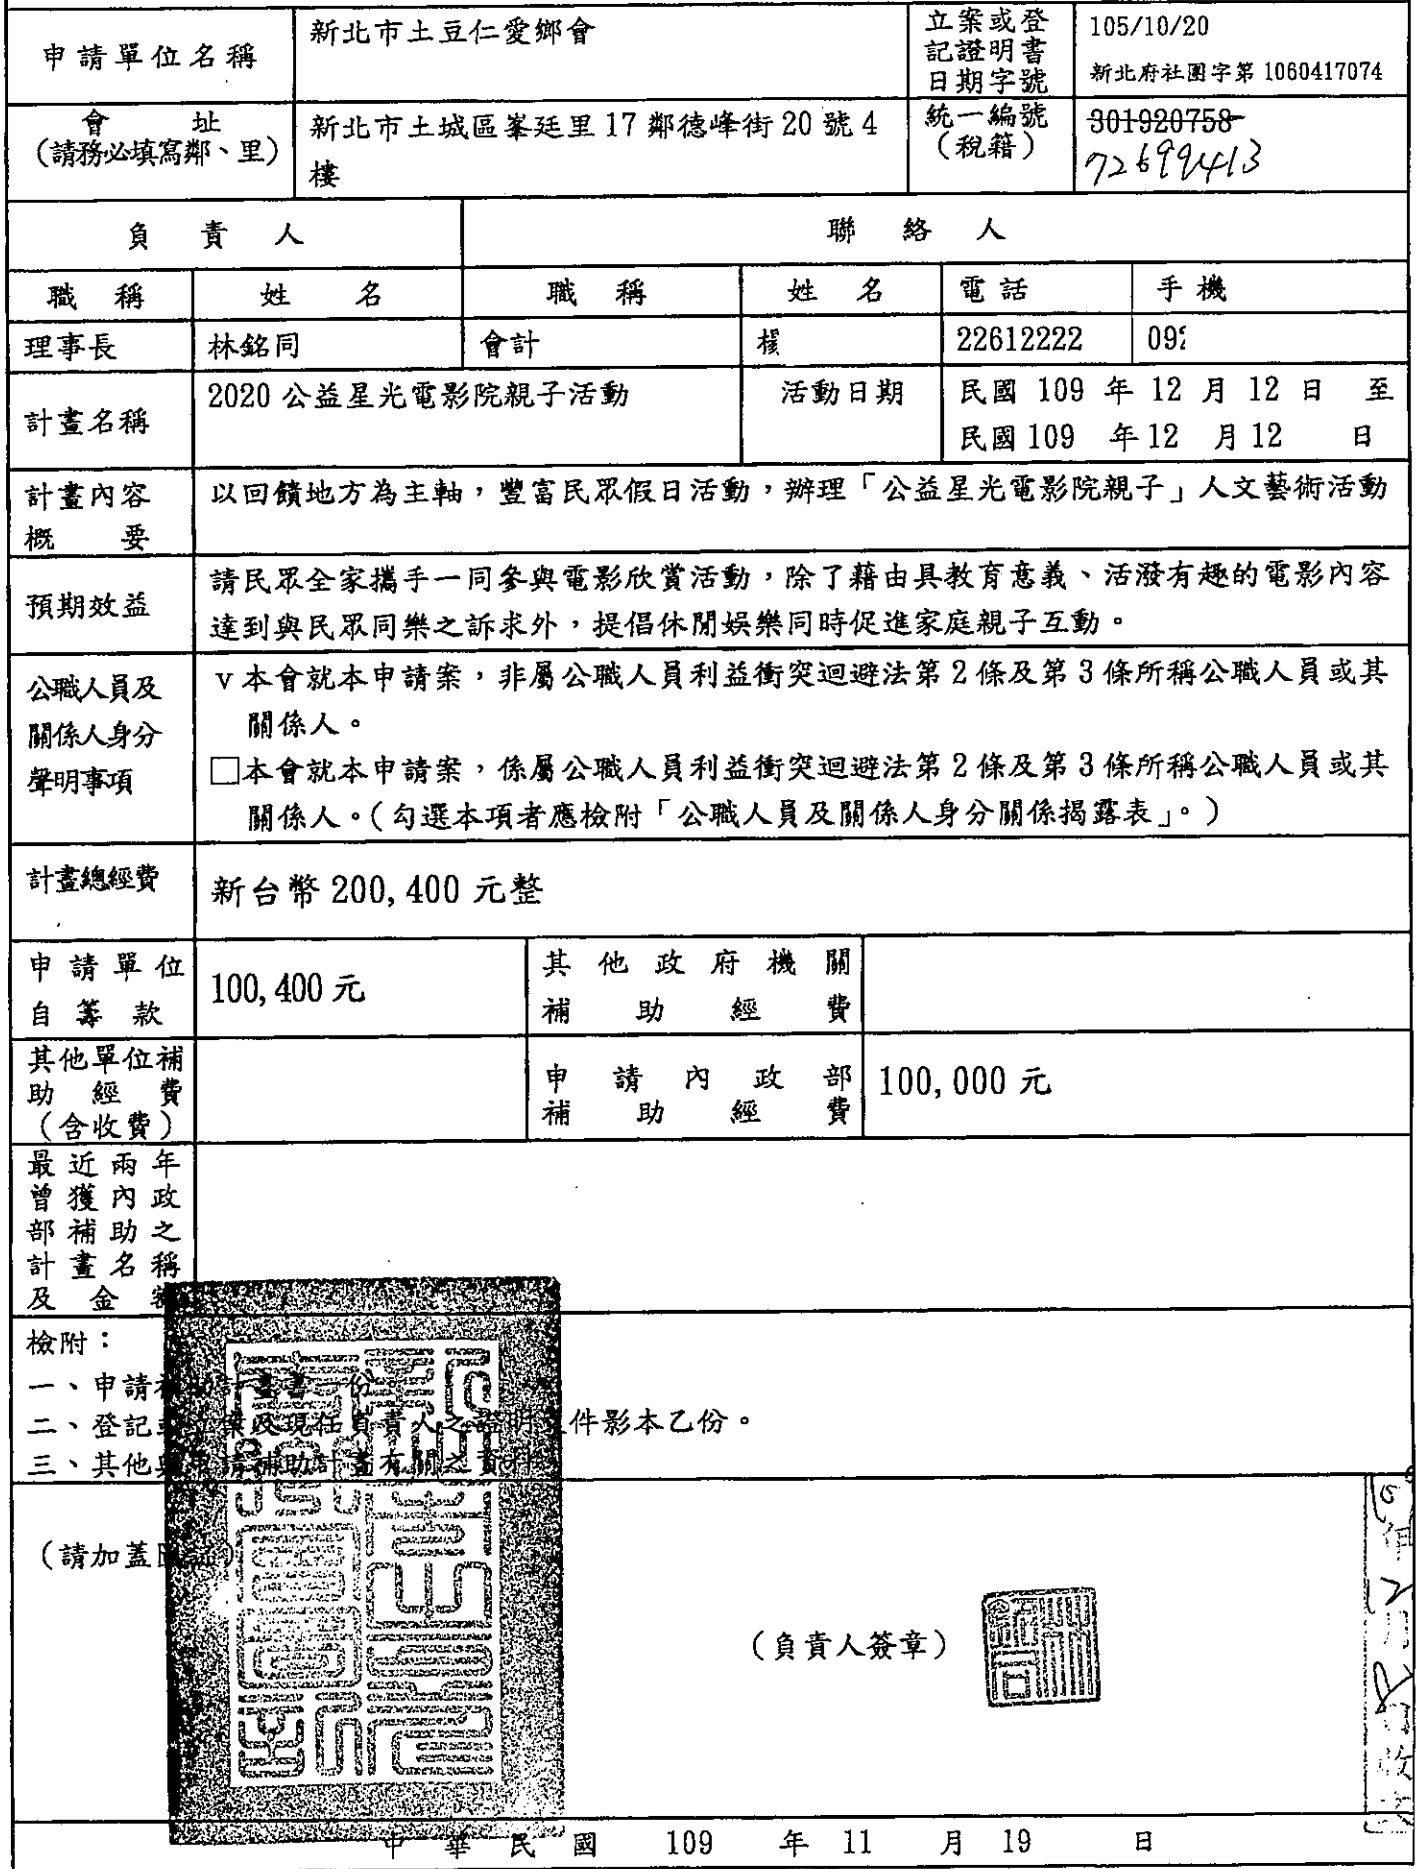 申請單位名稱
新北市土豆仁愛鄉會
立案或登
記證明書
日期字號
105/10/20
新北府社團字第 1060417074
會 址
(請務必填寫鄰、里)
新北市土城區峯廷里 17 鄰德峰街 20 號 4
樓
統一編號
(稅籍)
301920758
72699413
負 責 人
聯 絡 人
職 稱
姓 名
職 稱
姓 名
電話
手機
理事長
林銘同
會計
22612222
092
計畫名稱
2020 公益星光電影院親子活動
活動日期
民國 109 年 12 月 12 日 至
民國 109 年 12 月 12 日
計畫內容
概 要
以回饋地方為主軸,豐富民眾假日活動,辦理「公益星光電影院親子」人文藝術活動
預期效益
請民眾全家攜手一同參與電影欣賞活動,除了藉由具教育意義、活潑有趣的電影內容
達到與民眾同樂之訴求外,提倡休閒娛樂同時促進家庭親子互動。
公職人員及
關係人身分
聲明事項
v 本會就本申請案,非屬公職人員利益衝突迴避法第 2 條及第 3 條所稱公職人員或其
關係人。
□本會就本申請案,係屬公職人員利益衝突迴避法第 2 條及第 3 條所稱公職人員或其
關係人。(勾選本項者應檢附「公職人員及關係人身分關係揭露表」。)
計畫總經費
新台幣 200,400 元整
申請單位
自籌款
100,400 元
其他政府機關
補助經費
其他單位補
助經費
(含收費)
申請內政部
補助經費
100,000 元
最近兩年
曾獲內政
部補助之
計畫名稱
及金額
檢附:
一、申請補助計畫書一份。
二、登記或立案及現任負責人之證明文件影本乙份。
三、其他與申請補助計畫有關之資料
(請加蓋圖記)
(負責人簽章)
林銘同
中 華 民 國 109 年 11 月 19 日